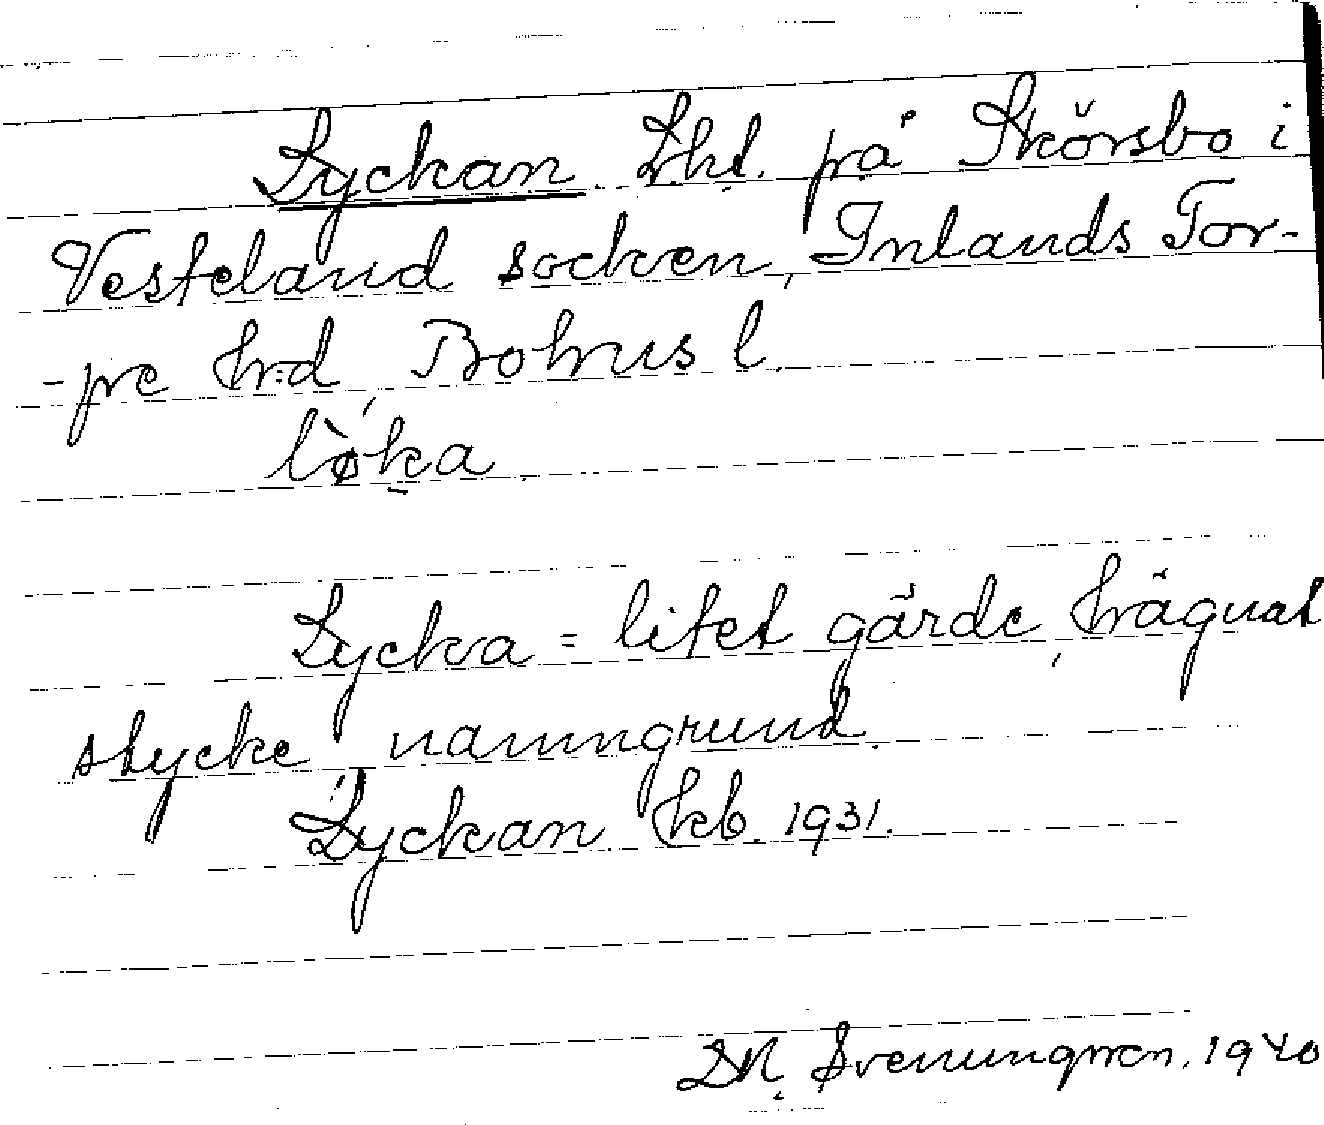 Lyckan Lht. på Skörsbo i
Vesteland socken, Inlands Tor-
-pe hrd, Bohus l.
lø̀ka
Lycka = litet gärde, hägnat
stycke, namngrund.
Lyckan kb. 1931.
1940